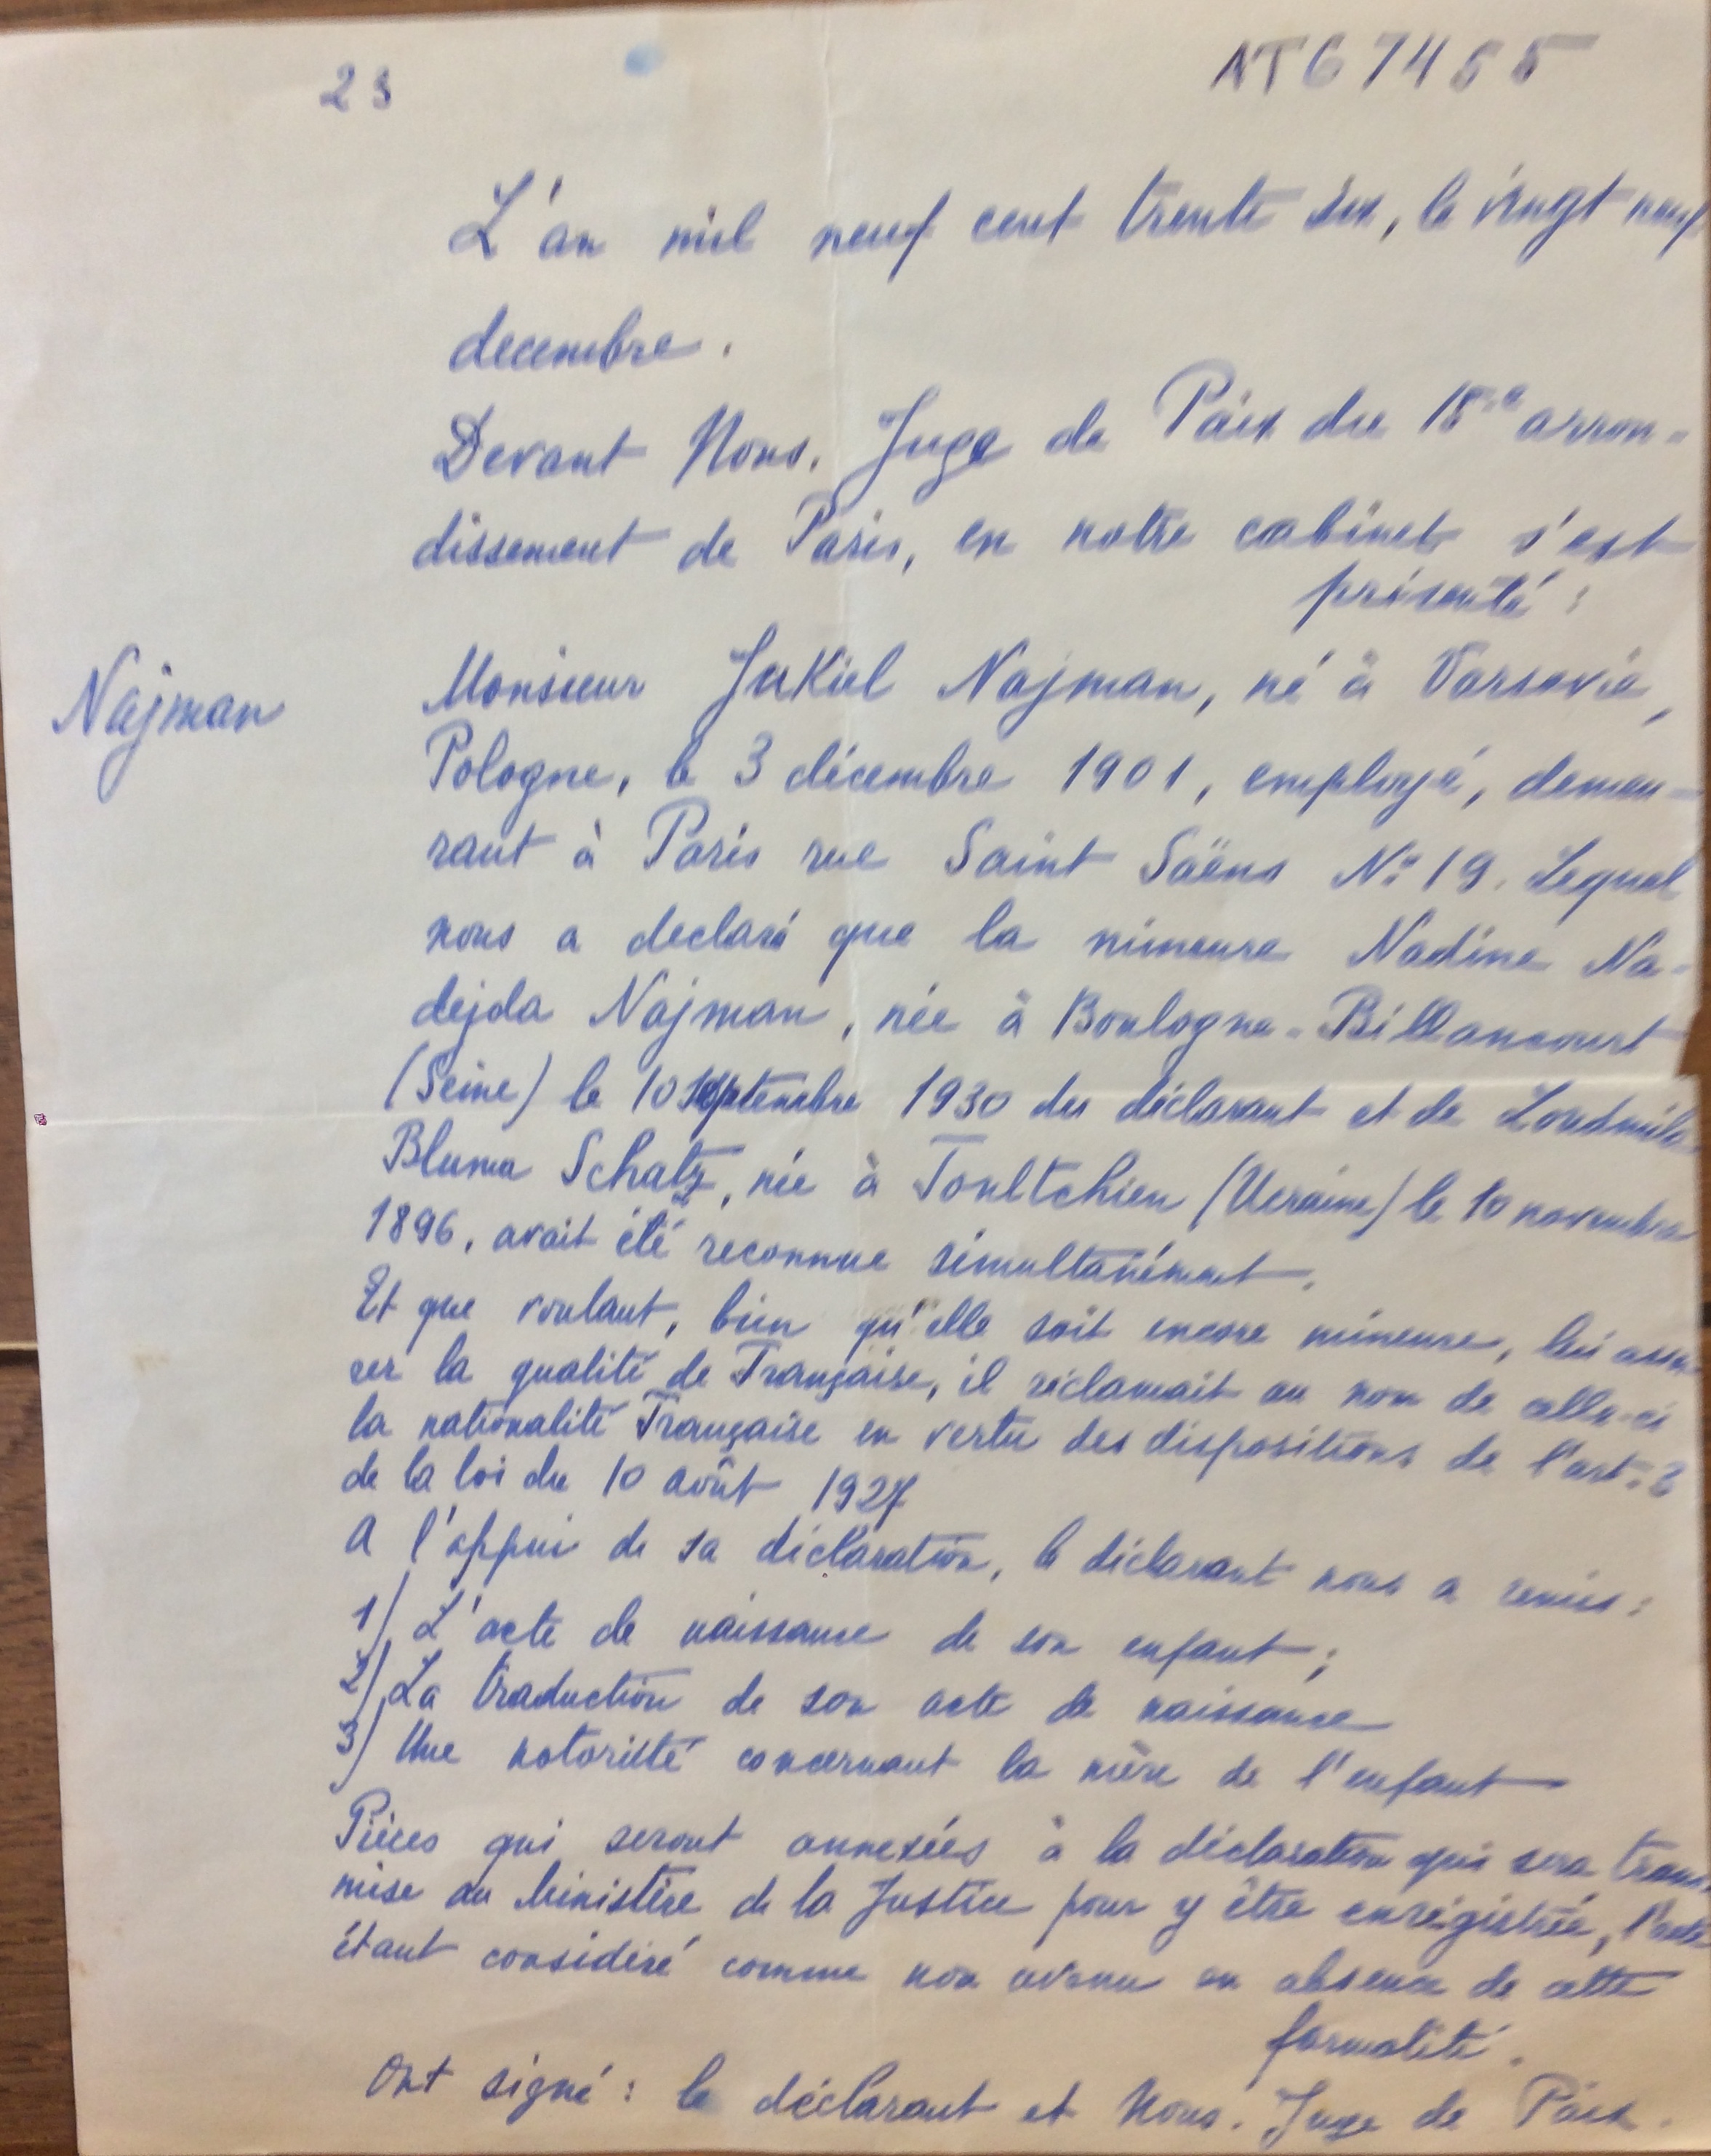 23
ATG 7455
L'an mil neuf cent trente six, le vingt neuf
decembre.
Devant Nous. Juge de Paix du 15me arron-
dissement de Paris, en notre cabinet s'est
présenté :
Najman
Monsieur Jukiel Najman, né à Varsovie,
Pologne, le 3 décembre 1901, employé, demeu-
rant à Paris rue Saint Saëns No 19. Lequel
nous a declaré que la mineure Nadine Na-
dejda Najman, née à Boulogne-Billancourt
(Seine) le 10 septembre 1930 du déclarant et de Loudmila
Bluma Schatz, née à Toultchien (Ucraine) le 10 novembre
1896, avait été reconnue simultanément.
Et que voulant, bien qu'elle soit encore mineure, lui assu-
rer la qualité de Française, il réclamait au nom de celle-ci
la nationalité Française en vertu des dispositions de l'art. 3
de la loi du 10 août 1927
A l'appui de sa déclaration, le déclarant nous a remis :
1) L'acte de naissance de son enfant ;
2) La traduction de son acte de naissance
3) Une notoriété concernant la mère de l'enfant
Pièces qui seront annexées à la déclaration qui sera trans-
mise au Ministère de la Justice pour y être enrégistrée, l'acte
étant considéré comme non avenu en absence de cette
formalité.
Ont signé : le déclarant et Nous. Juge de Paix.